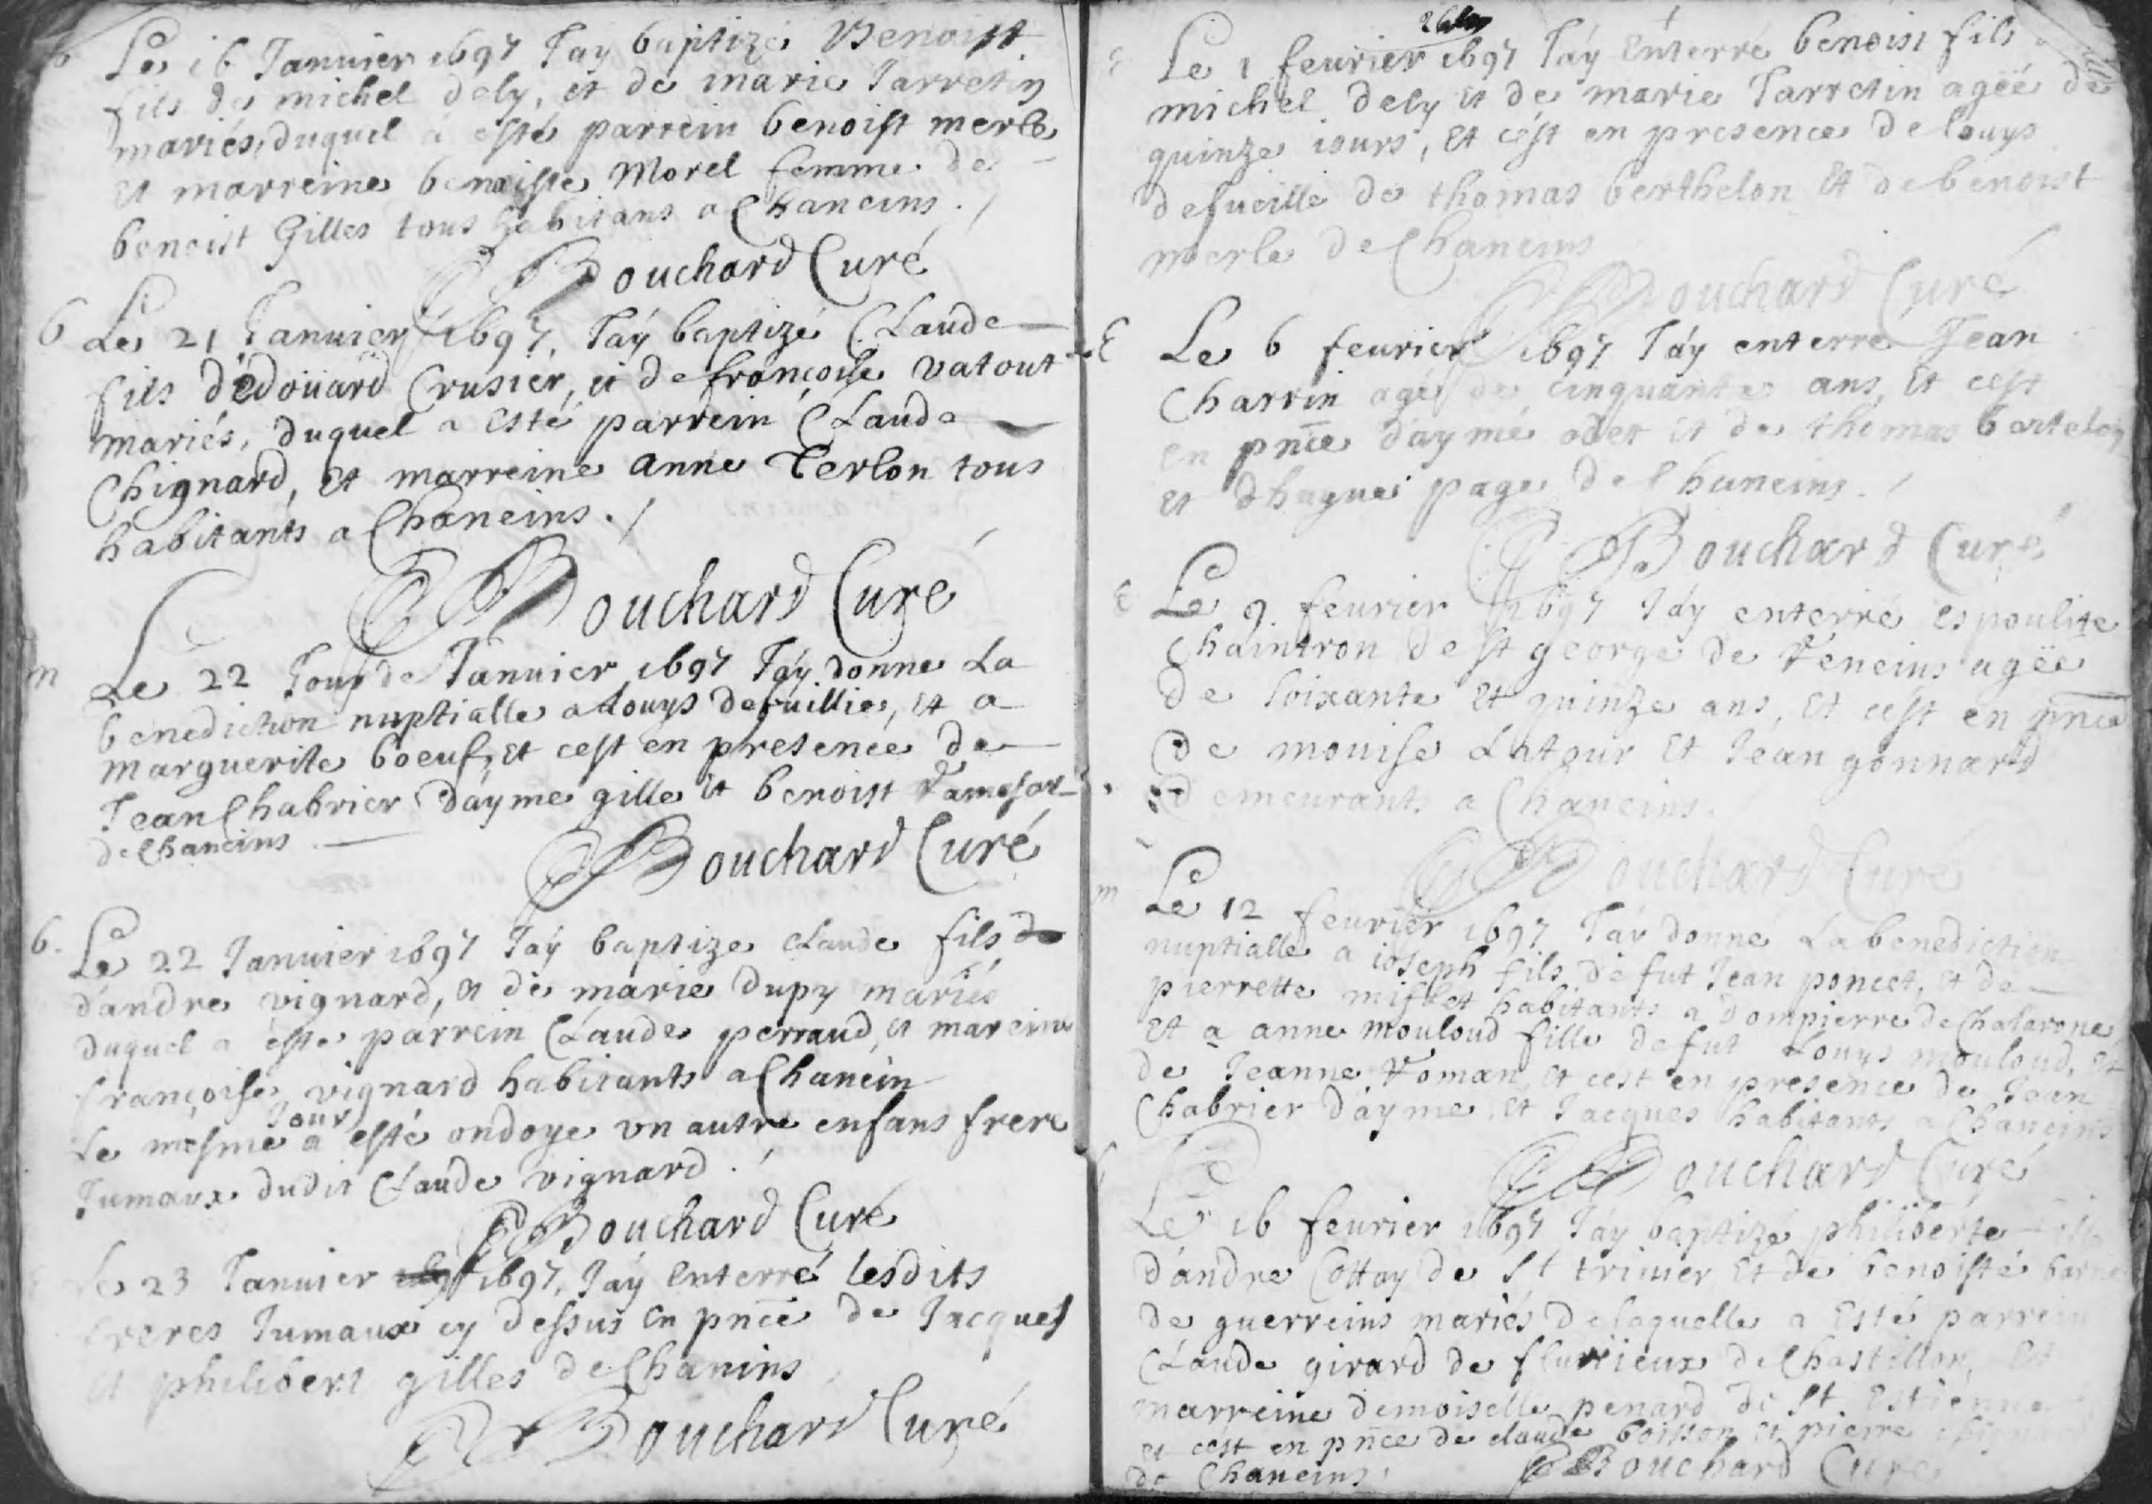 b Le 16 Januier 1697 Jay baptizé Benoist
fils de michel dely, et de marie Jarretin
mariés, duquel a esté parrein benoist merle
et marreine benoiste Morel femme de
benoist Gilles tous habitans a Chaneins ./
Bouchard Curé
b Le 21 Januier 1697, Jáy baptizé Claude
fils d'édoüard Crusier, et de françoise vatout
mariés, duquel a Esté parrein Claude
Chignard, et marreine anne Terlon tous
habitants a Chaneins ./
Bouchard Curé
m Le 22 Jour de Januier 1697 Jáy donne La
benediction nuptialle a Louys defuillie, et a
marguerite boeuf, et cest en presence de
Jean Chabrier dáyme gille et benoist
de Chaneins
Bouchard Curé
b. Le 22 Januier 1697 Jáy baptize claude fils de
d'andre vignard, et de marie dupy mariés
duquel a esté parrein Claude perraud, et mareine
françoise vignard habitants a Chanein
Jour
Le mésme a esté ondoye un autre enfans frere
Jumaux dudit Claude vignard ./
Bouchard Curé
Le 23 Januier 1697, Jáy Enterré lesdits
freres Jumaux cy dessus en pnce de Jacques
et philibert gilles de Chanins
Bouchard Curé
E Le 1 feurier 1697 Jáy Enterré benoist fils
michel dely et de marie Jarretin ageé de
quinze iours, et cést en presence de Louys
defueille de thomas berthelon et de benoist
merle de Chaneins
Bouchard Curé
E Le 6 feurier 1697 Jáy enterré Jean
Charrin agé de cinquante ans, et cest
en pnce dáyme odet et de thomas bertelon
et d'hugue page de Chaneins ./
Bouchard Curé
E Le 9 feurier 1697 Jáy enterré espoulite
Chaintron de st george de Reneins agée
de soixante et quinze ans, et cest en pnce
de mouise Latour et Jean gonnard
demeurants a Chaneins.
Bouchard Curé
m Le 12 feurier 1697 Jáy donne La benediction
nuptialle a ioseph fils de fut Jean poncet, et de
pierrette habitants a dompierre de Chalarone
et a anne mouloud fille de fut Louys mouloud, et
de Jeanne Roman, et cest en presence de Jean
Chabrier d'áyme, et Jacques habitants a Chaneins
Bouchard Curé
Le 16 feurier 1697 Jáy baptizé philiberte
d'andre Cottay de st triuier et de benoiste
de guerreins mariés de laquelle a Esté parrein
Claude girard de flurieux de Chastillon et
marreine demoiselle penard de st Estienne
et cést en pnce de claude boisson et pierre
de Chaneins
Bouchard Curé